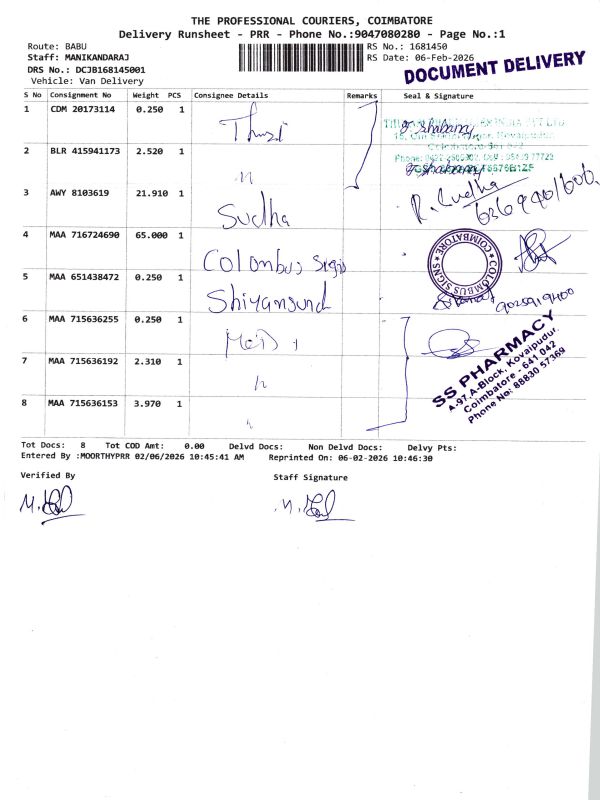 THE PROFESSIONAL COURIERS, COIMBATORE
Delivery Runsheet - PRR - Phone No.:9047080280 - Page No.:1
Route: BABU
RS No.: 1681450
Staff: MANIKANDARAJ
RS Date: 06-Feb-2026
DRS No.: DCJB168145001
Vehicle: Van Delivery
DOCUMENT DELIVERY
S No Consignment No Weight PCS Consignee Details Remarks Seal & Signature
1 CDM 20173114 0.250 1
2 BLR 415941173 2.520 1 "
3 AWY 8103619 21.910 1 Sudha R. Sudha
4 MAA 716724690 65.000 1 Colombus Signs
COLOMBUS SIGNS COIMBATORE
5 MAA 651438472 0.250 1
6 MAA 715636255 0.250 1
7 MAA 715636192 2.310 1 "
8 MAA 715636153 3.970 1 "
SS PHARMACY
A-97, A-Block, Kovaipudur,
Coimbatore - 641 042
Phone No: 88830 57369
Tot Docs: 8 Tot COD Amt: 0.00 Delvd Docs: Non Delvd Docs: Delvy Pts:
Entered By :MOORTHYPRR 02/06/2026 10:45:41 AM Reprinted On: 06-02-2026 10:46:30
Verified By
Staff Signature